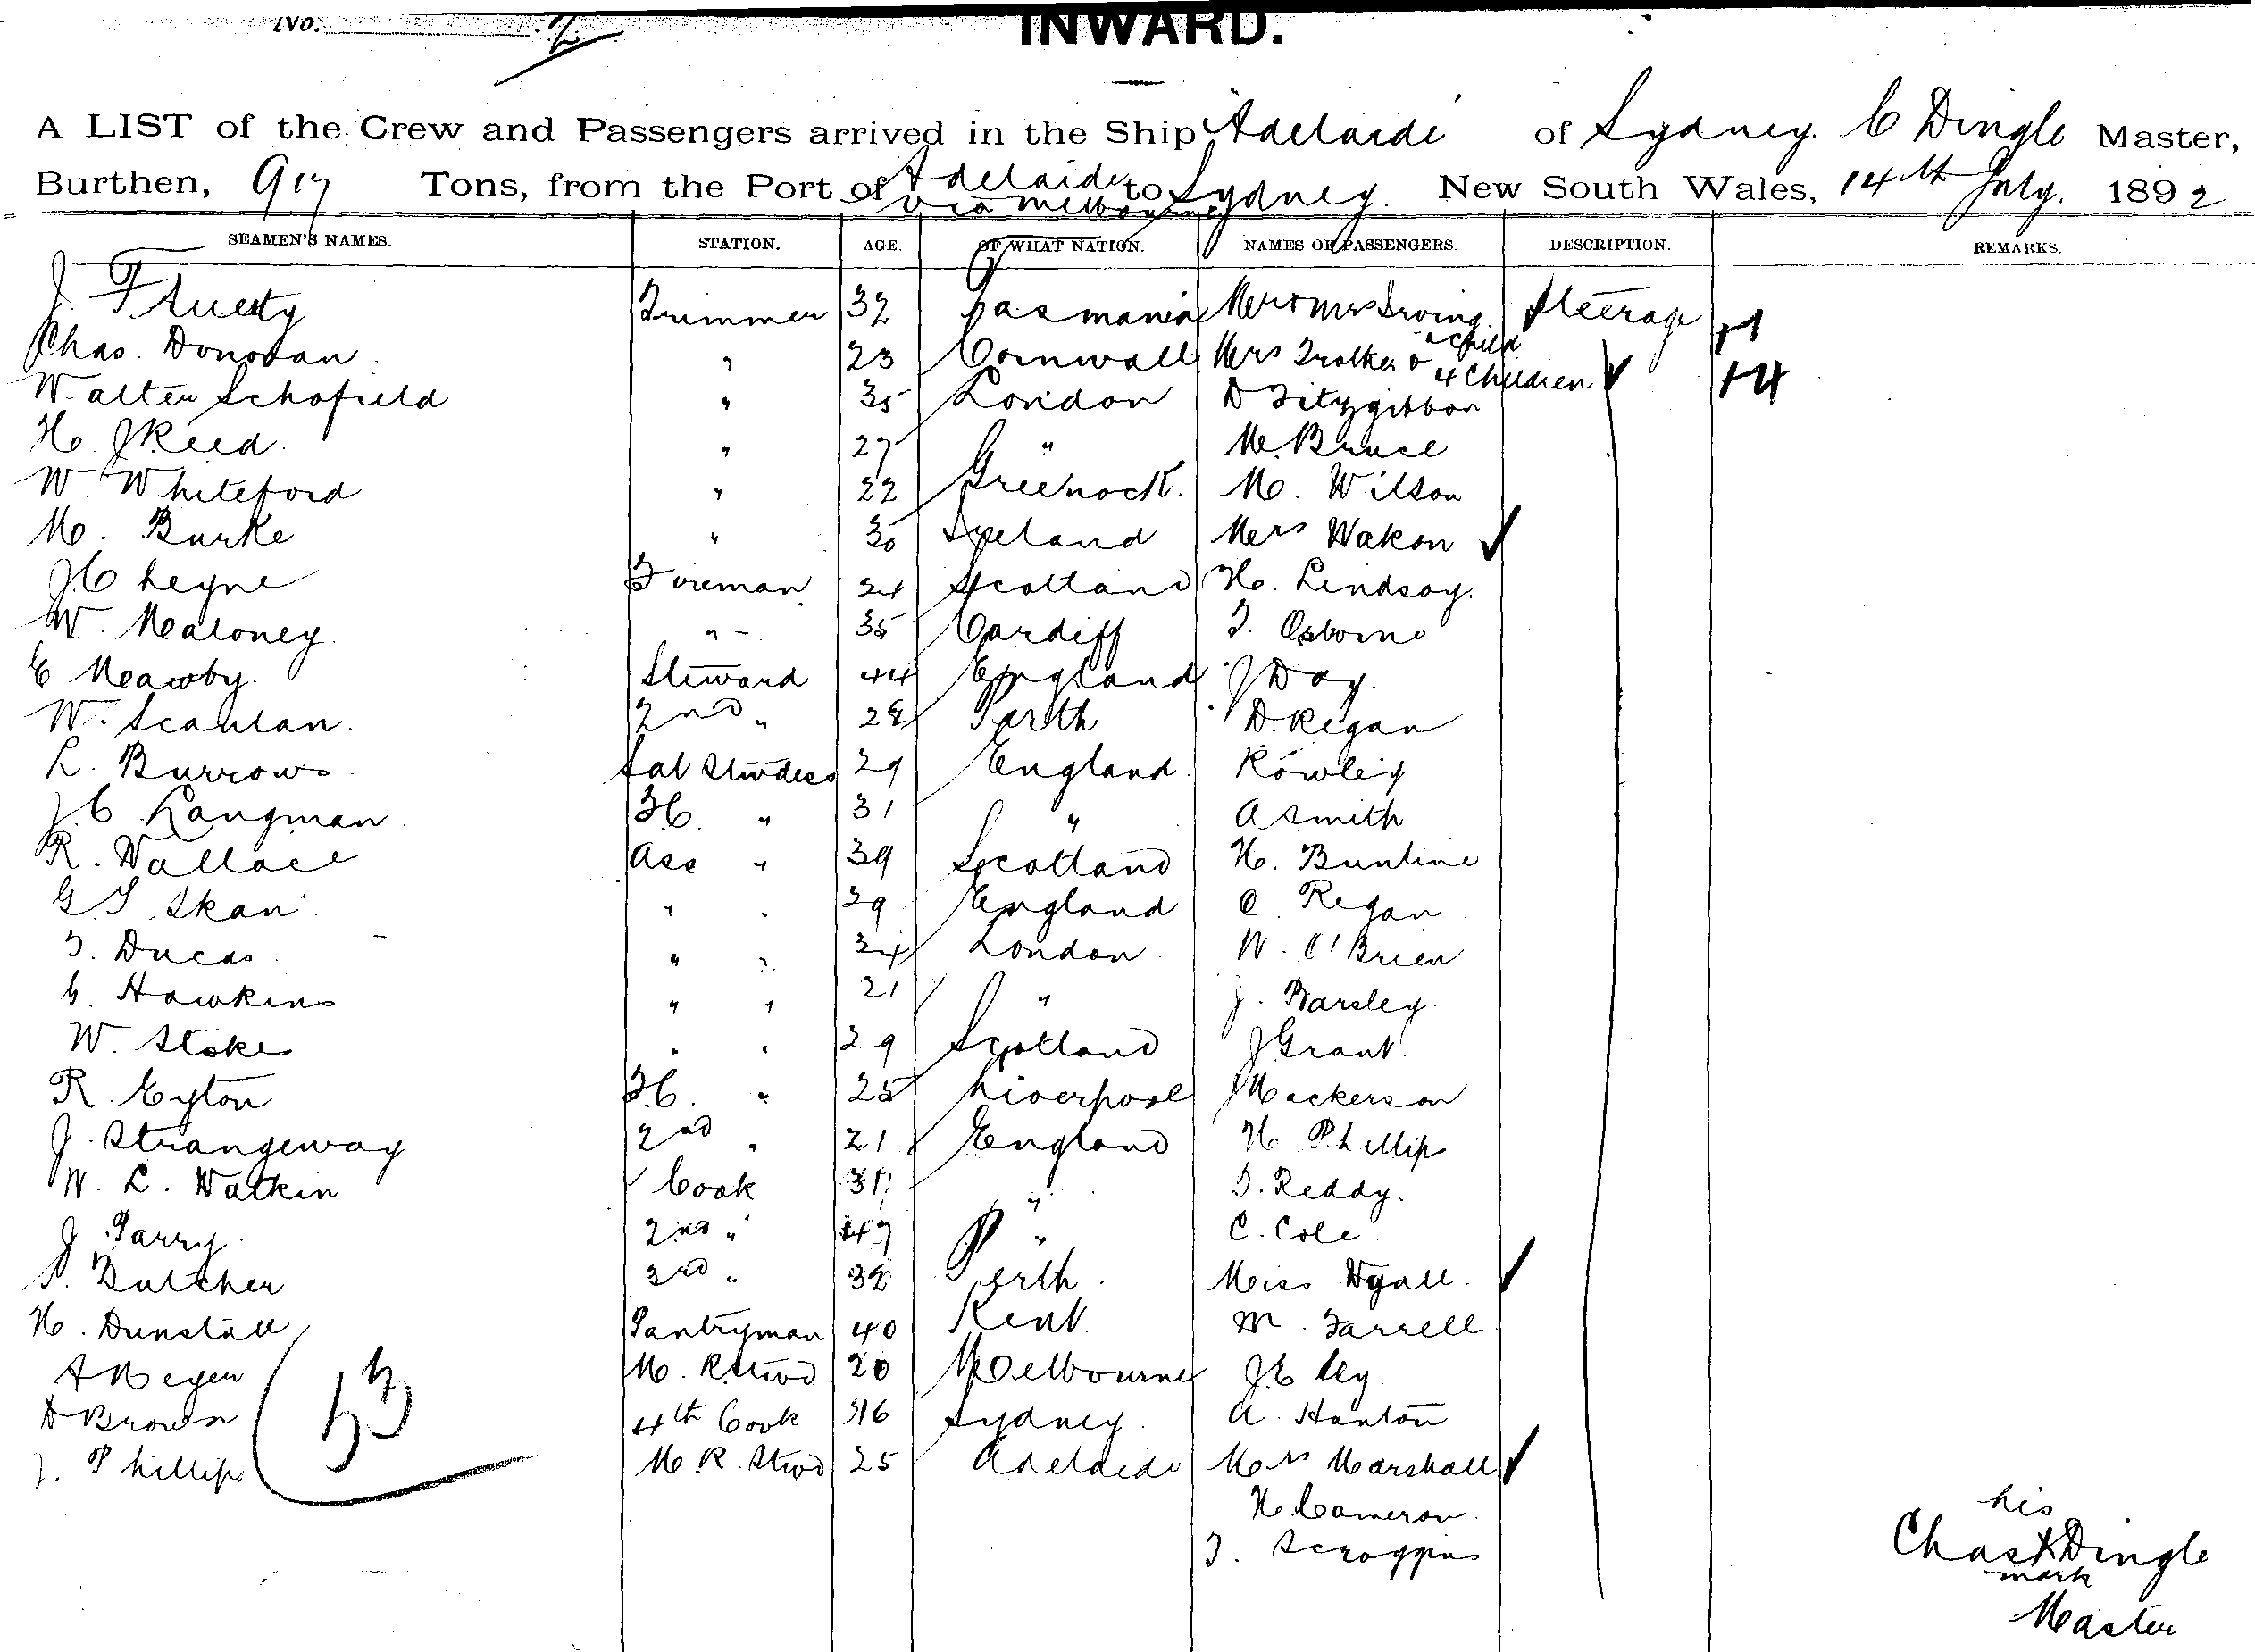 No. 2
INWARD.
A LIST of the Crew and Passengers arrived in the Ship Adelaide of Sydney. C Dingle Master,
Burthen, 917 Tons, from the Port of Adelaide via Melbourne to Sydney. New South Wales, 14th July. 1892
SEAMEN'S NAMES. STATION. AGE. OF WHAT NATION. NAMES OF PASSENGERS. DESCRIPTION. REMARKS.
J. Trimmer 32 Tasmania Mr & Mrs Irving Steerage +1
Chas. Donovan " 23 Cornwall Mrs & Child
Walter Schofield " 35 London D Fitzgibbon 4 Children +4
H. J Reed. " 27 " M. Bruce
W. Whiteford " 22 Greenock. M. Wilson
M. Burke " 30 Ireland Mrs Wakon
J Cheyne Fireman 24 Scotland H. Lindsay.
W. Maloney. " 35 Cardiff T. Osborne
E Mawby. Steward 44 England J Day.
W. Scanlan. 2nd " 28 Perth D. Regan
L. Burrows Sal Stwdess 29 England. Rowley
J. C Langman. F.C. " 31 " A Smith
R. Wallace Ass " 39 Scotland H. Buntine
G. T Skan. " " 29 England C. Regan
T. Ducas " " 34 London W. O'Brien
G. Hawkins " " 21 " J. Barsley.
W. Stoke " " 29 Scotland J Grant.
R. Eyton F.C. " 25 Liverpool J Mackerson
J. Strangeway 2nd " 21 England H Phillip
W. L. Watkin Cook 31 " T. Reddy
J. Parry. 2nd " 47 " C. Cole
Butcher 3rd " 38 Perth. Miss Wyall.
H. Dunstall Pantryman 40 Kent M. Farrell
A Meyer M. R Stwd 20 Melbourne J. E
D Brown 4th Cook 16 Sydney. A. Hanton
J. Phillips M. R. Stwd 25 Adelaide Mrs Marshall
53
H. Cameron.
T. Scroggins
his
Chas X Dingle
mark
Master